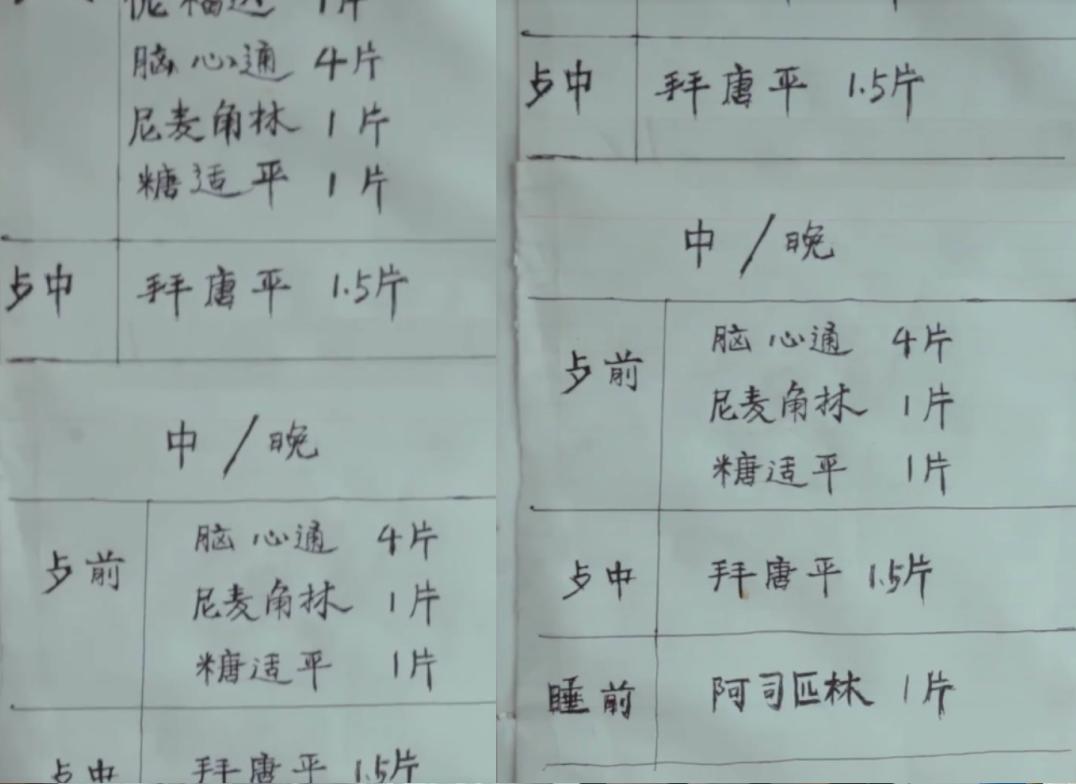 脑心通 4片
尼麦角林 1片
糖适平 1片
歺中 拜唐平 1.5片
中/晚
歺前 脑心通 4片
尼麦角林 1片
糖适平 1片
歺中 拜唐平 1.5片
歺中 拜唐平 1.5片
中/晚
歺前 脑心通 4片
尼麦角林 1片
糖适平 1片
歺中 拜唐平 1.5片
睡前 阿司匹林 1片